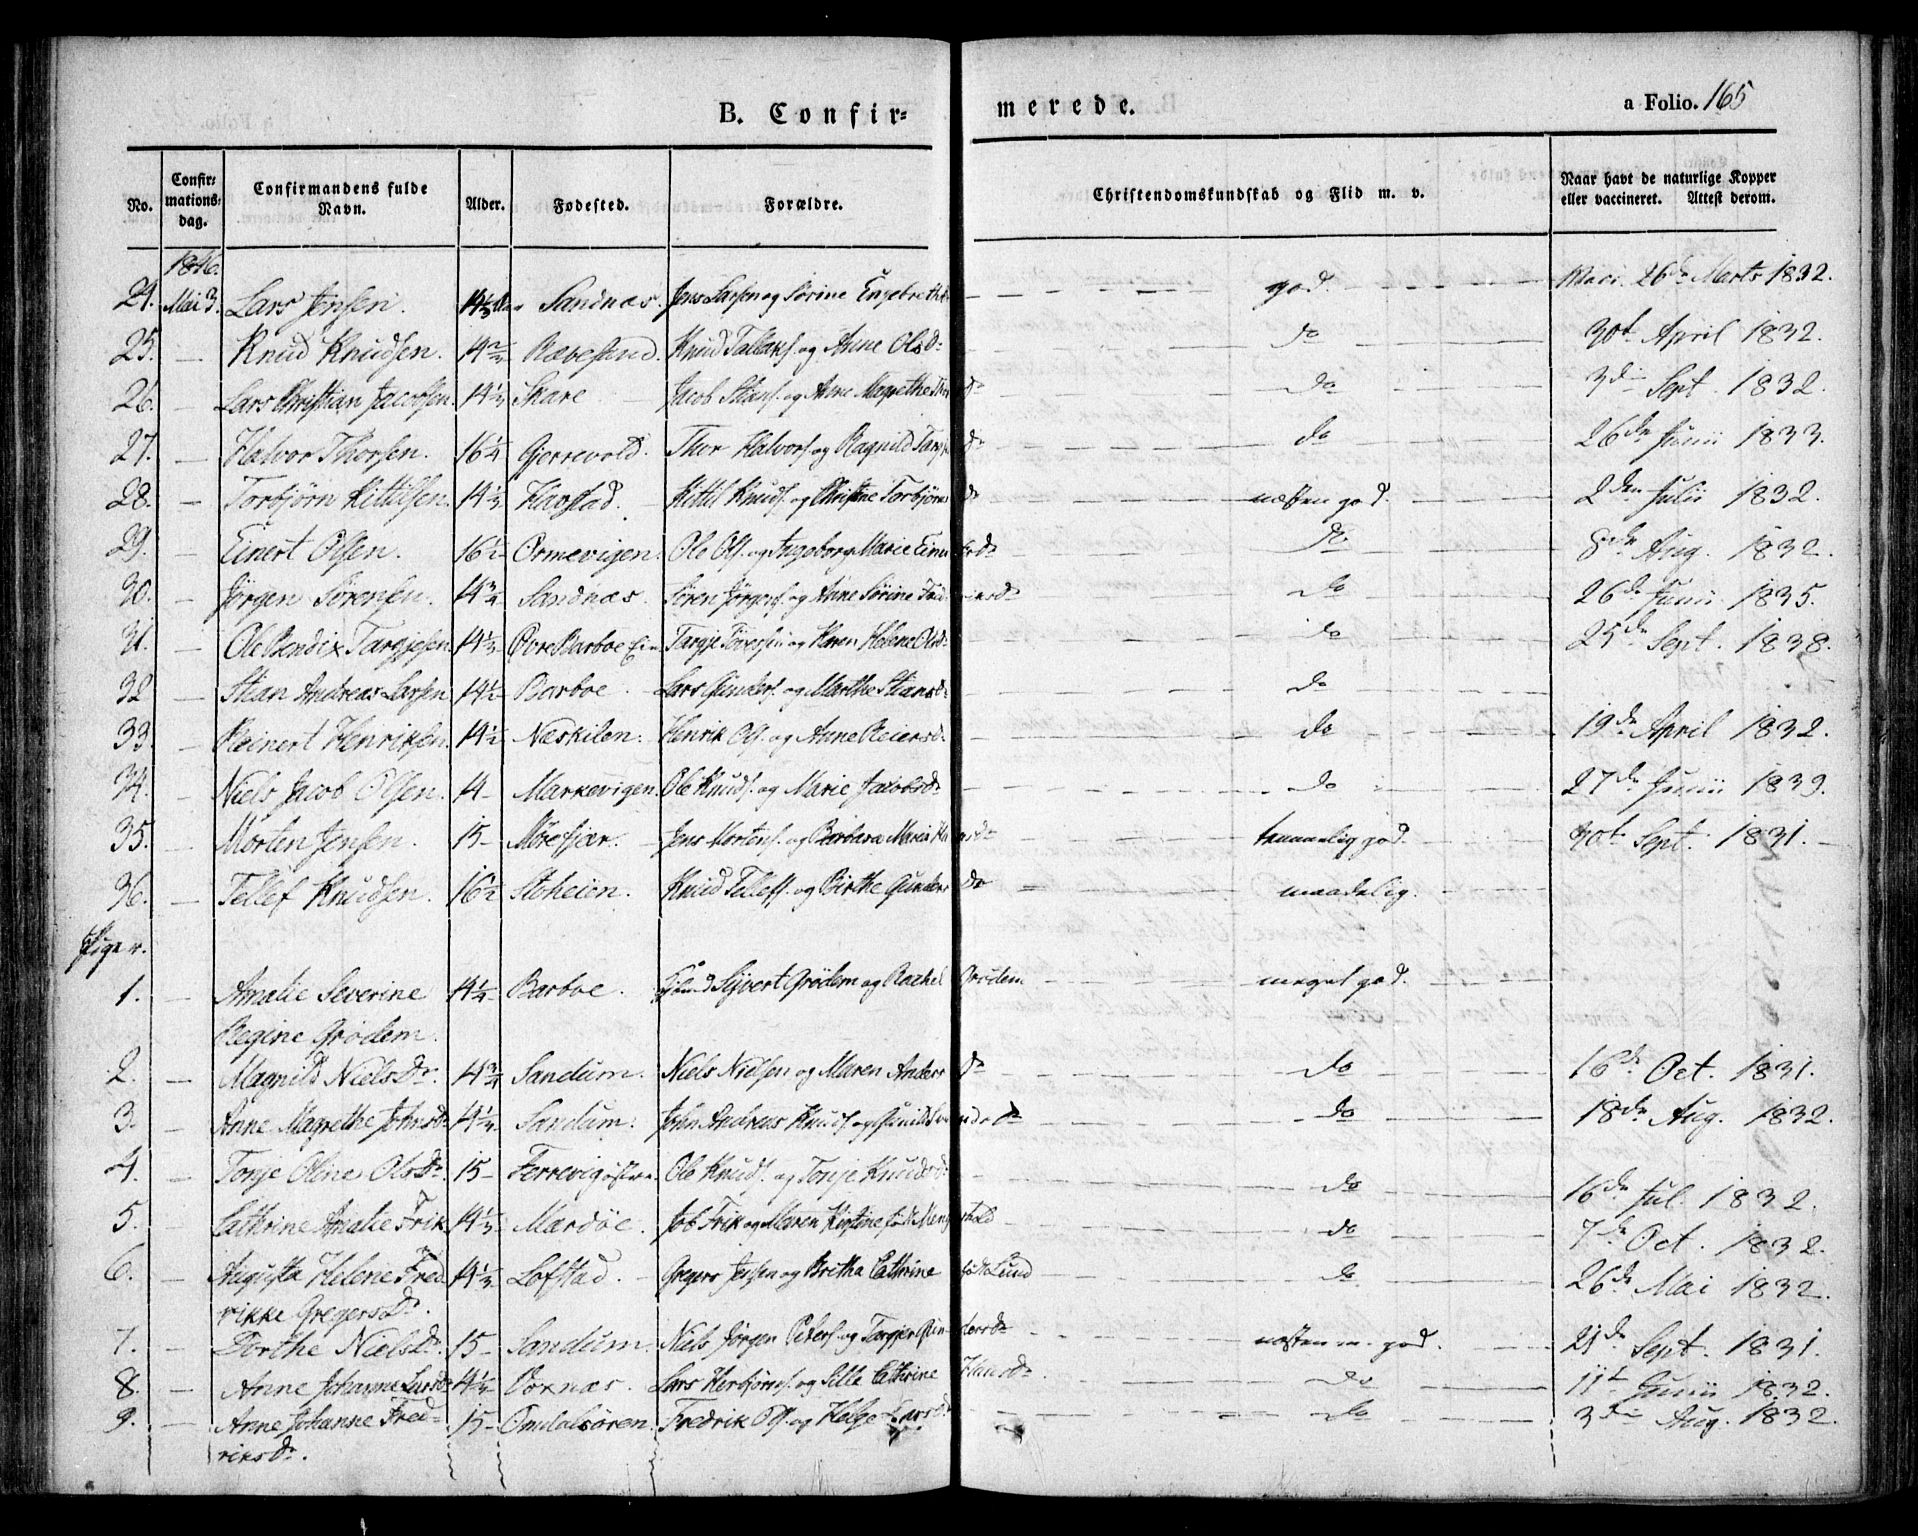 B. Confir=merede. a Folio. 165
No. Confir=mations=dag. Confirmandens fulde Navn. Alder. Fødested. Forældre. Christendomskundskab og Flid m. v. Naar havt de naturlige Kopper eller vaccineret. Attest derom.
1846.
24. Mai 3. Lars Jensen. Sandnæs. Jens Larsen og Sørine god 26de Marts 1832.
25. — Knud Knudsen. 14 2/3 Rævesand. Knud Tallaks. og Anne Olsd. do 30t April 1832.
26. — Lars Christian Jacobsen. 14 1/3 Skare Jacob Stians. og Anne Magrethe do 3die Sept 1832.
27. — Halvor Thorsen. 16 1/4 Gjerrevold. Thor Halvors. og Ragnild do 26de Junii 1833.
28. — Torbjørn Kittilsen. 14 1/3 Havstad. Kittil Knuds. og Christine Torbjørnsd. næsten god. 2den Julii 1832.
29. — Einert Olsen. 16 1/2 Ormevigen. Ole Ols. og Ingeborg Marie do 8de Aug. 1832.
30. — Jørgen Sørensen. 14 3/4 Sandnæs. Søren Jørgens. og Anne Sørine do 26de Junii 1835.
31. — Ole Bendix Targjesen 14 1/3 Øvre Barboe Targje og Karen Helene Olsd. do 25de Sept. 1838.
32 — Stian Andreas Larsen 14 1/2 Barboe. Lars Gunders. og Marthe Stiansd. do
33. — Reinert Henriksen 14 1/2 Næskilen. Henrik Ols. og Anne do 19de April 1832.
34. — Niels Jacob Olsen. 14 — Markevigen. Ole Knuds. og Marie Jacobsd. do 27de Junii 1839.
35. — Morten Jensen. 15 — Morefjær. Jens Mortens. og Barbara Maria temmelig god. 30t Sept. 1831.
36. — Tellef Knudsen. 16 1/2 Stoheien. Knud Tellefs. og Birthe Gundersd. maadelig.
Piger.
1. — Amalie Severine 14 1/4 Barboe. Sivert Grødem og Rachel Grødem meget god.
Regine Grødem.
2. — Magnild Nielsdr. 14 3/4 Sandum. Niels Nielsen og Maren Andersd. do 16de Oct. 1831.
3. — Anne Magrethe Johnsd. 14 1/2 Sandum. John Andreas Knuds. og do 18de Aug. 1832.
4. — Tonje Oline Olsdr. 15 — Ferrevig Ole Knuds. og Tonje Knudsd. do 16de Jul. 1832.
5. — Cathrine Amalie Frik 14 1/3 Mærdøe. Job Frik og Maren Kistine do 7de Oct. 1832.
6. — Augusta Helene Fred 14 1/3 Lofstad. Gregers Jensen og Britha Cathrine født Lund do 26de Mai 1832.
rikke Gregersdr.
7. — Dorthe Nielsdr. 15 — Sandum. Niels Jørgen Peters. og Torgjer Gundersd. næsten m. god. 21de Sept. 1831.
8. — Anne Johanne Larsd. 14 1/2 Vornæs. Lars Herbjørns. og Sille Cathrine Hansd. do 11t Junii 1832.
9. — Anne Johanne Fred= 15 — Omdalsøren. Fredrik Ols. og Helge Larsd. do 3die Aug. 1832.
riksdr.